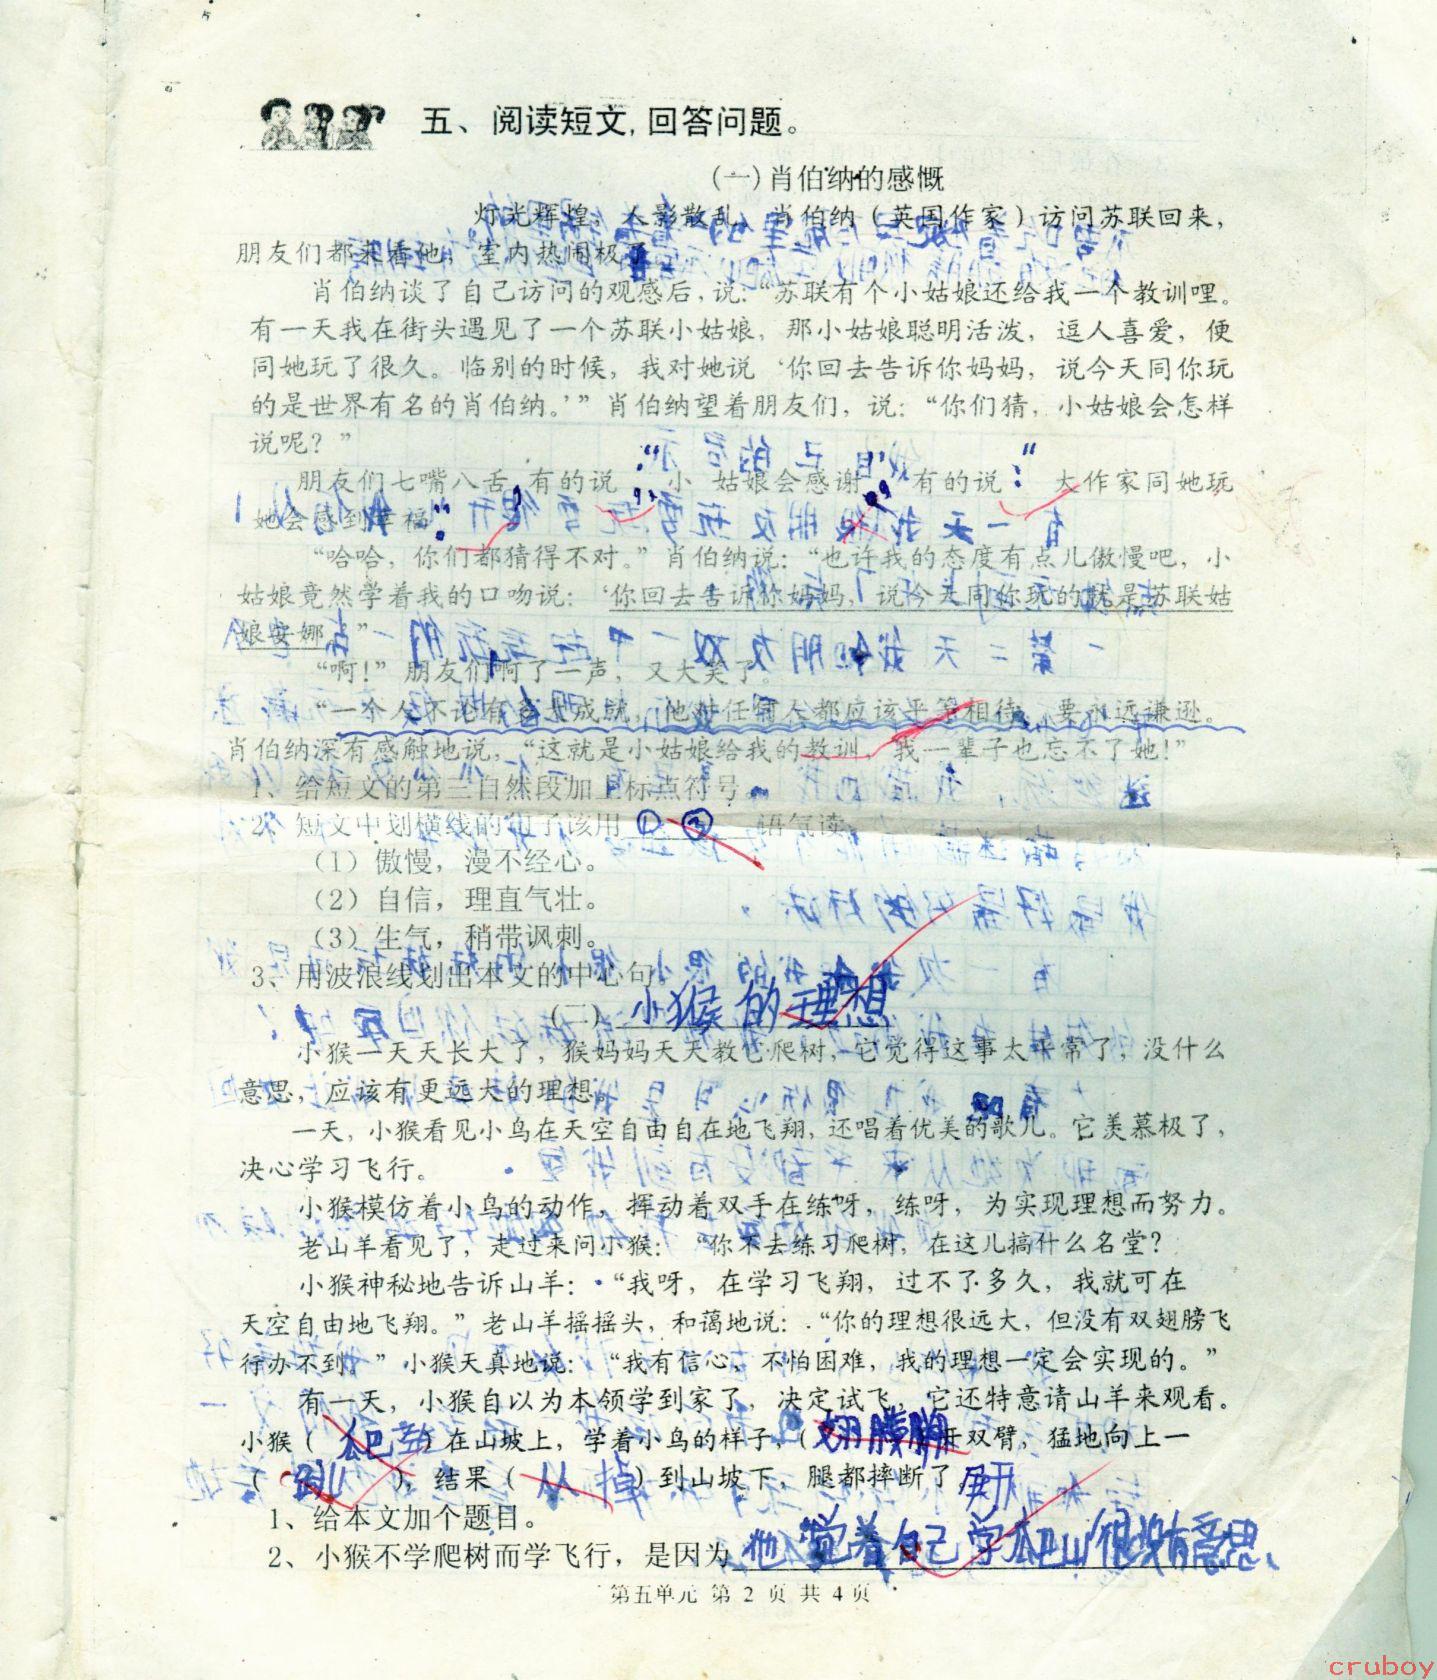 五、阅读短文,回答问题。
(一)肖伯纳的感慨
灯光辉煌，人影散乱，肖伯纳（英国作家）访问苏联回来，
朋友们都来看他，室内热闹极了。
肖伯纳谈了自己访问的观感后，说：“苏联有个小姑娘还给我一个教训哩。
有一天我在街头遇见了一个苏联小姑娘，那小姑娘聪明活泼，逗人喜爱，便
同她玩了很久。临别的时候，我对她说‘你回去告诉你妈妈，说今天同你玩
的是世界有名的肖伯纳。’”肖伯纳望着朋友们，说：“你们猜，小姑娘会怎样
说呢？”
朋友们七嘴八舌，有的说：“小姑娘会感谢”，有的说：“大作家同她玩
她会感到幸福”。
“哈哈，你们都猜得不对。”肖伯纳说：“也许我的态度有点儿傲慢吧，小
姑娘竟然学着我的口吻说：‘你回去告诉你妈妈，说今天同你玩的就是苏联姑
娘安娜。’”
“啊！”朋友们啊了一声，又大笑了。
“一个人不论有多大成就，他对任何人都应该平等相待，要永远谦逊。
肖伯纳深有感触地说，“这就是小姑娘给我的教训，我一辈子也忘不了她!”
1、给短文的第三自然段加上标点符号。
2、短文中划横线的句子该用 ① ② 语气读。
（1）傲慢，漫不经心。
（2）自信，理直气壮。
（3）生气，稍带讽刺。
3、用波浪线划出本文的中心句。
（二）小猴的理想
小猴一天天长大了，猴妈妈天天教它爬树，它觉得这事太平常了，没什么
意思，应该有更远大的理想。
一天，小猴看见小鸟在天空自由自在地飞翔，还唱着优美的歌儿。它羡慕极了，
决心学习飞行。
小猴模仿着小鸟的动作，挥动着双手在练呀，练呀，为实现理想而努力。
老山羊看见了，走过来问小猴：“你不去练习爬树，在这儿搞什么名堂？
小猴神秘地告诉山羊：“我呀，在学习飞翔，过不了多久，我就可在
天空自由地飞翔。”老山羊摇摇头，和蔼地说：“你的理想很远大，但没有双翅膀飞
行办不到。”小猴天真地说：“我有信心，不怕困难，我的理想一定会实现的。”
有一天，小猴自以为本领学到家了，决定试飞，它还特意请山羊来观看。
小猴（爬车）在山坡上，学着小鸟的样子，（翅膀 ）开双臂，猛地向上一
（跳），结果（从掉）到山坡下，腿都摔断了。展开
1、给本文加个题目。
2、小猴不学爬树而学飞行，是因为他觉着自己学爬山很没有意思、
第五单元 第 2 页 共 4 页
cruboy